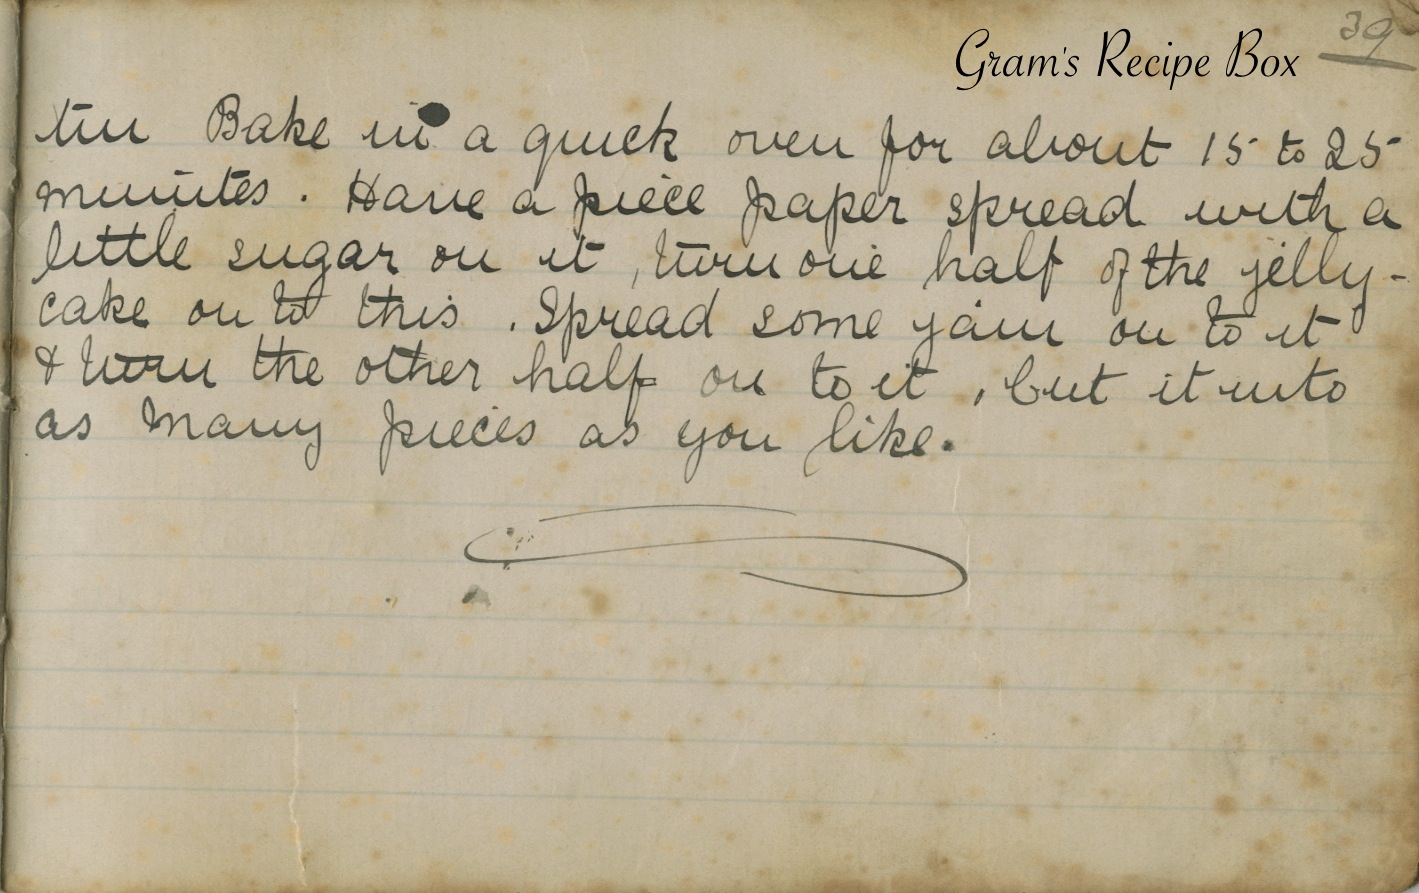 Gram's Recipe Box
39
tin Bake in a quick oven for about 15 to 25
minutes. Have a piece paper spread with a
little sugar on it, turn one half of the jelly-
cake on to this. Spread some jam on to it
& turn the other half on to it, cut it into
as many pieces as you like.